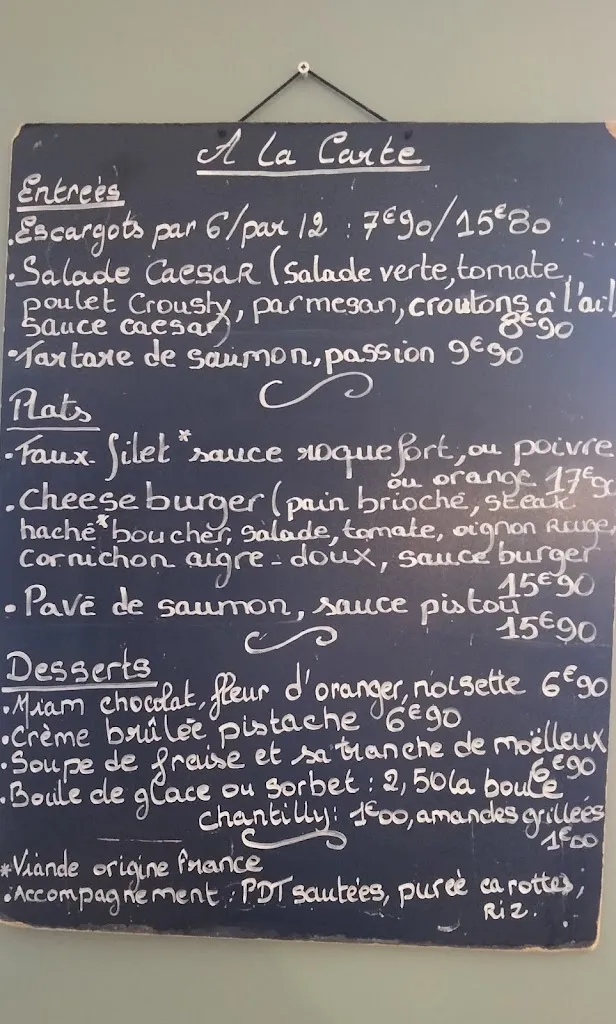 A la Carte
Entrées
.Escargots par 6/par 12 : 7€90/15€80 .....
•Salade CAESAR (Salade verte, tomate,
poulet Crousty, parmesan, croutons à l'ail,
sauce caesar) 8€90
•Tartare de saumon, passion 9€90
Plats
•Faux-filet *sauce roquefort, ou poivre
ou orange 17€90
•cheese burger (pain brioché, steak
haché* boucher, salade, tomate, oignon Rouge,
cornichon aigre-doux, sauce burger
15€90
•Pavé de saumon, sauce pistou
15€90
Desserts
•Miam chocolat, fleur d'oranger, noisette 6€90
•Crème brûlée pistache 6€90
•Soupe de fraise et sa tranche de moëlleux
6€90
•Boule de glace ou sorbet : 2,50 la boule
chantilly: 1€00, amandes grillées
1€00
*Viande origine France
•Accompagnement : PDT sautées, purée carottes,
Riz.